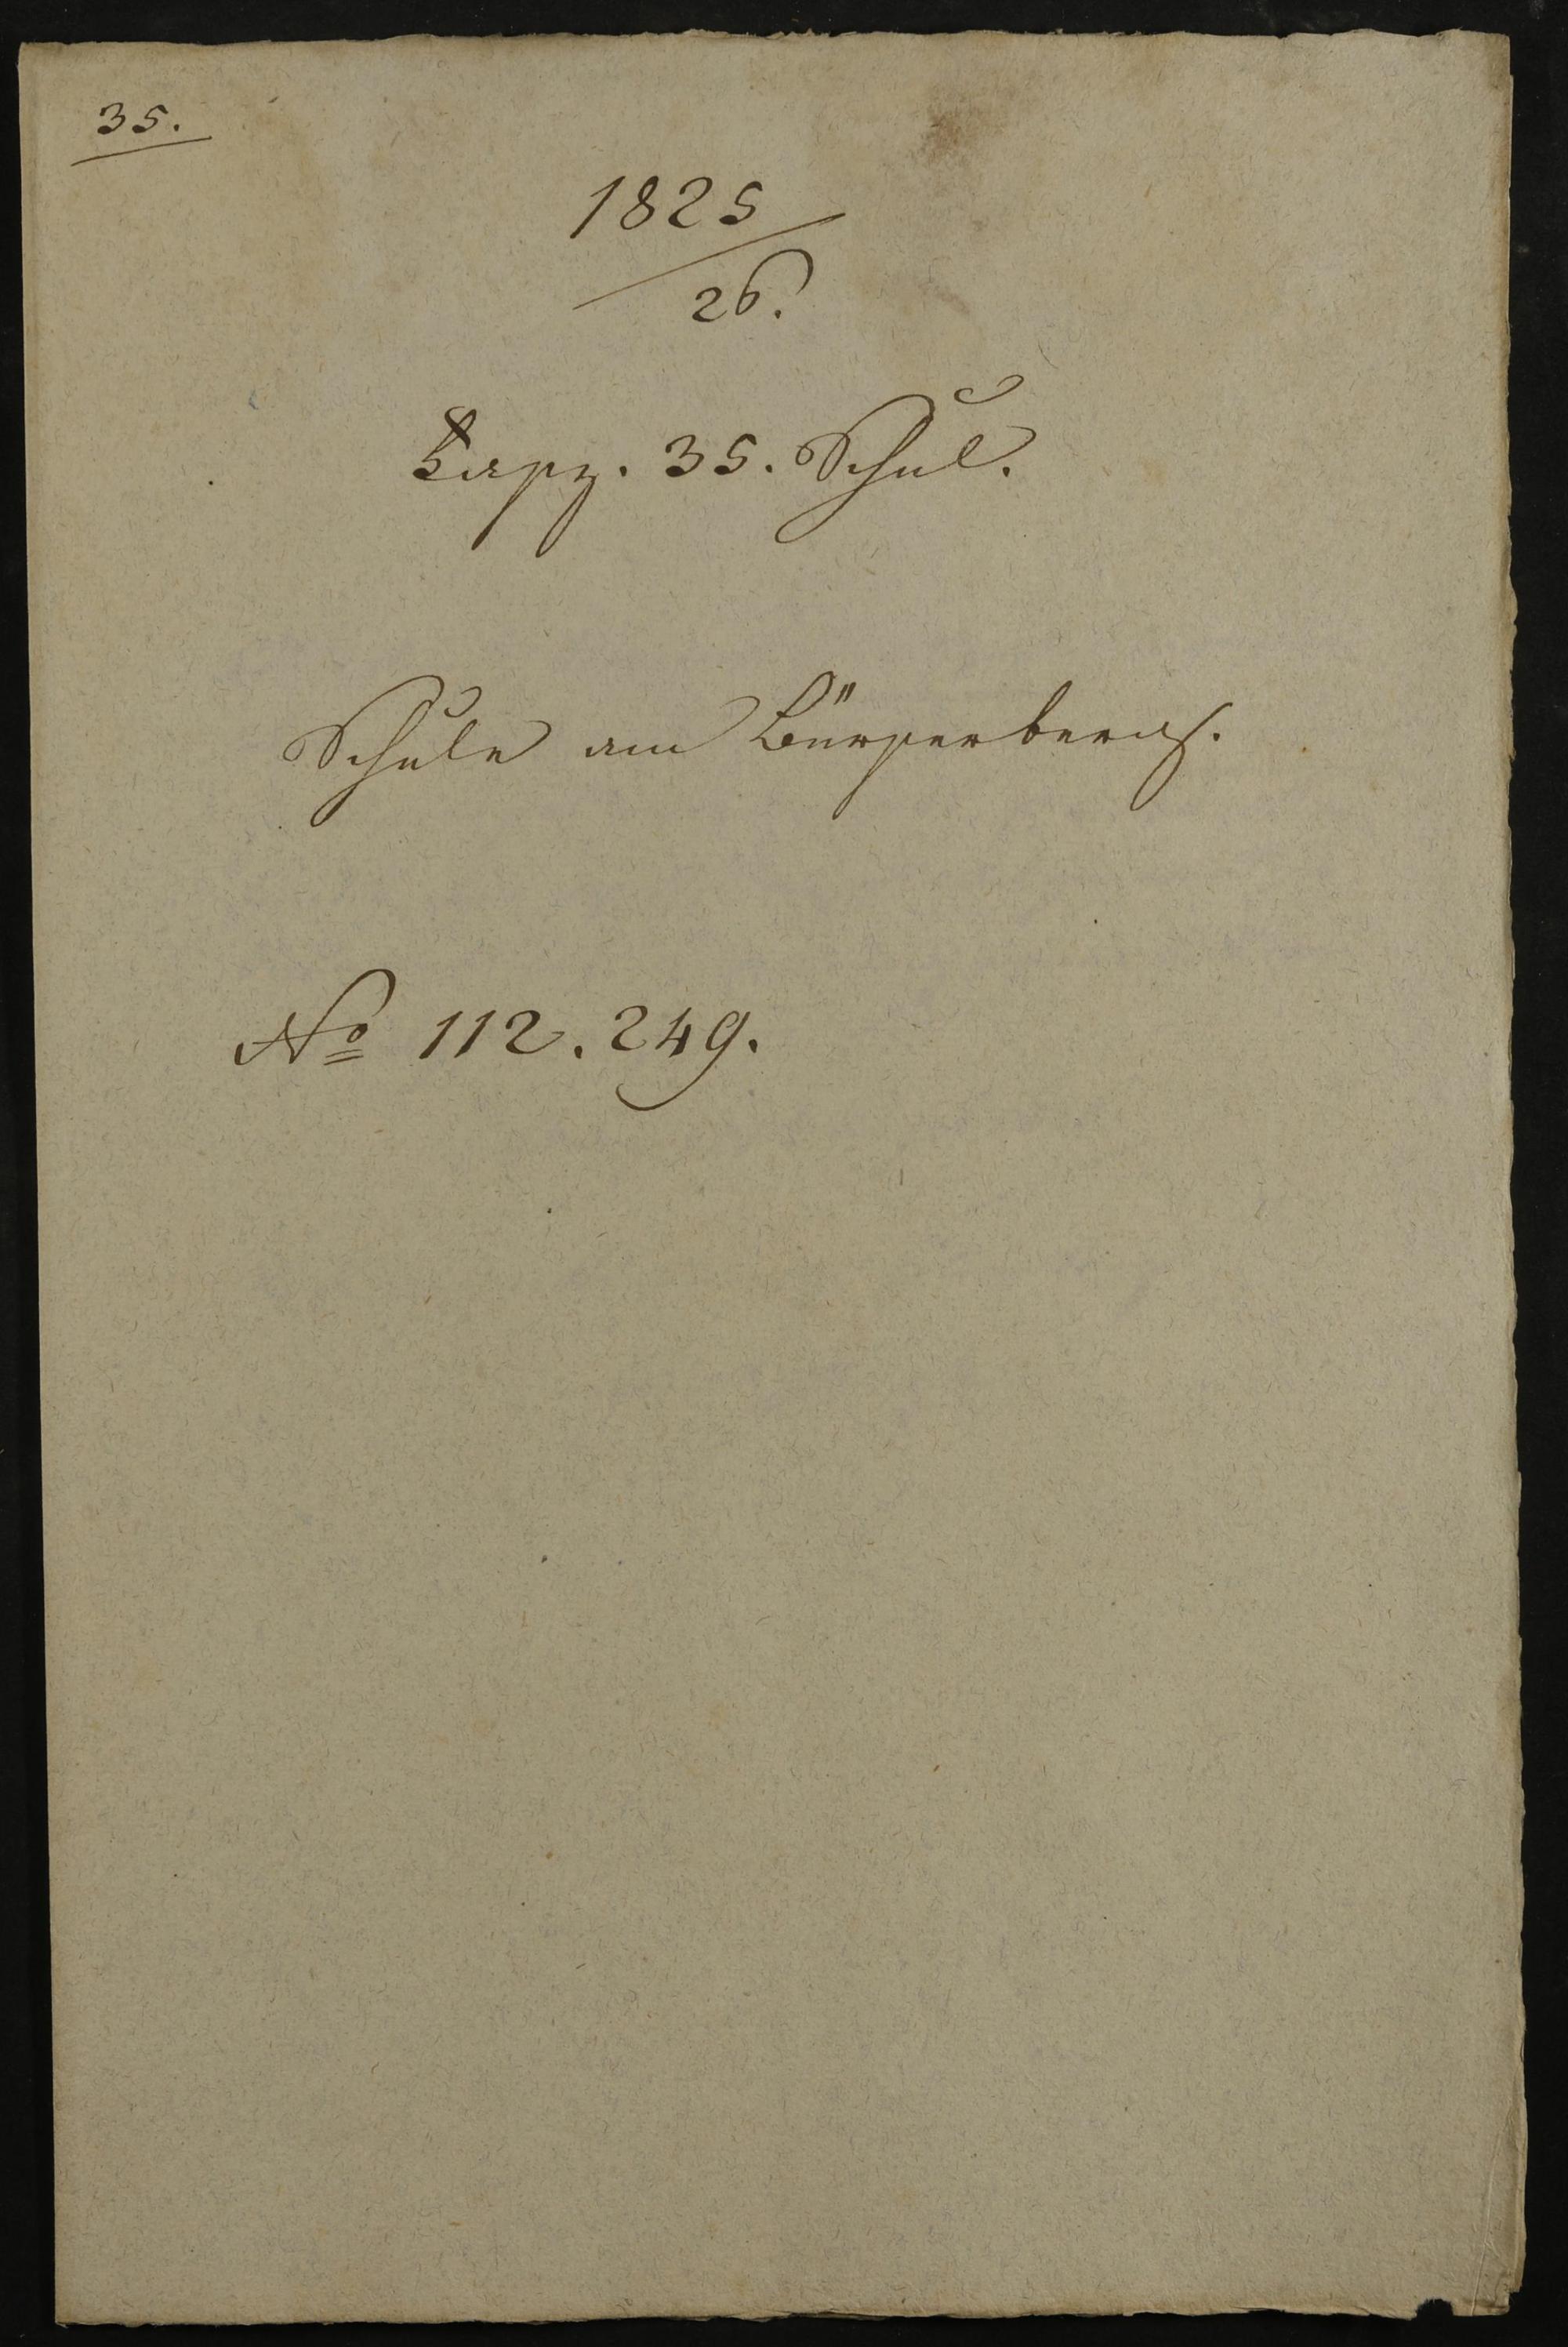 35.
1825
26.
Fasz. 35. Schul.
Schule am Bürgerberg.
No 112. 249.